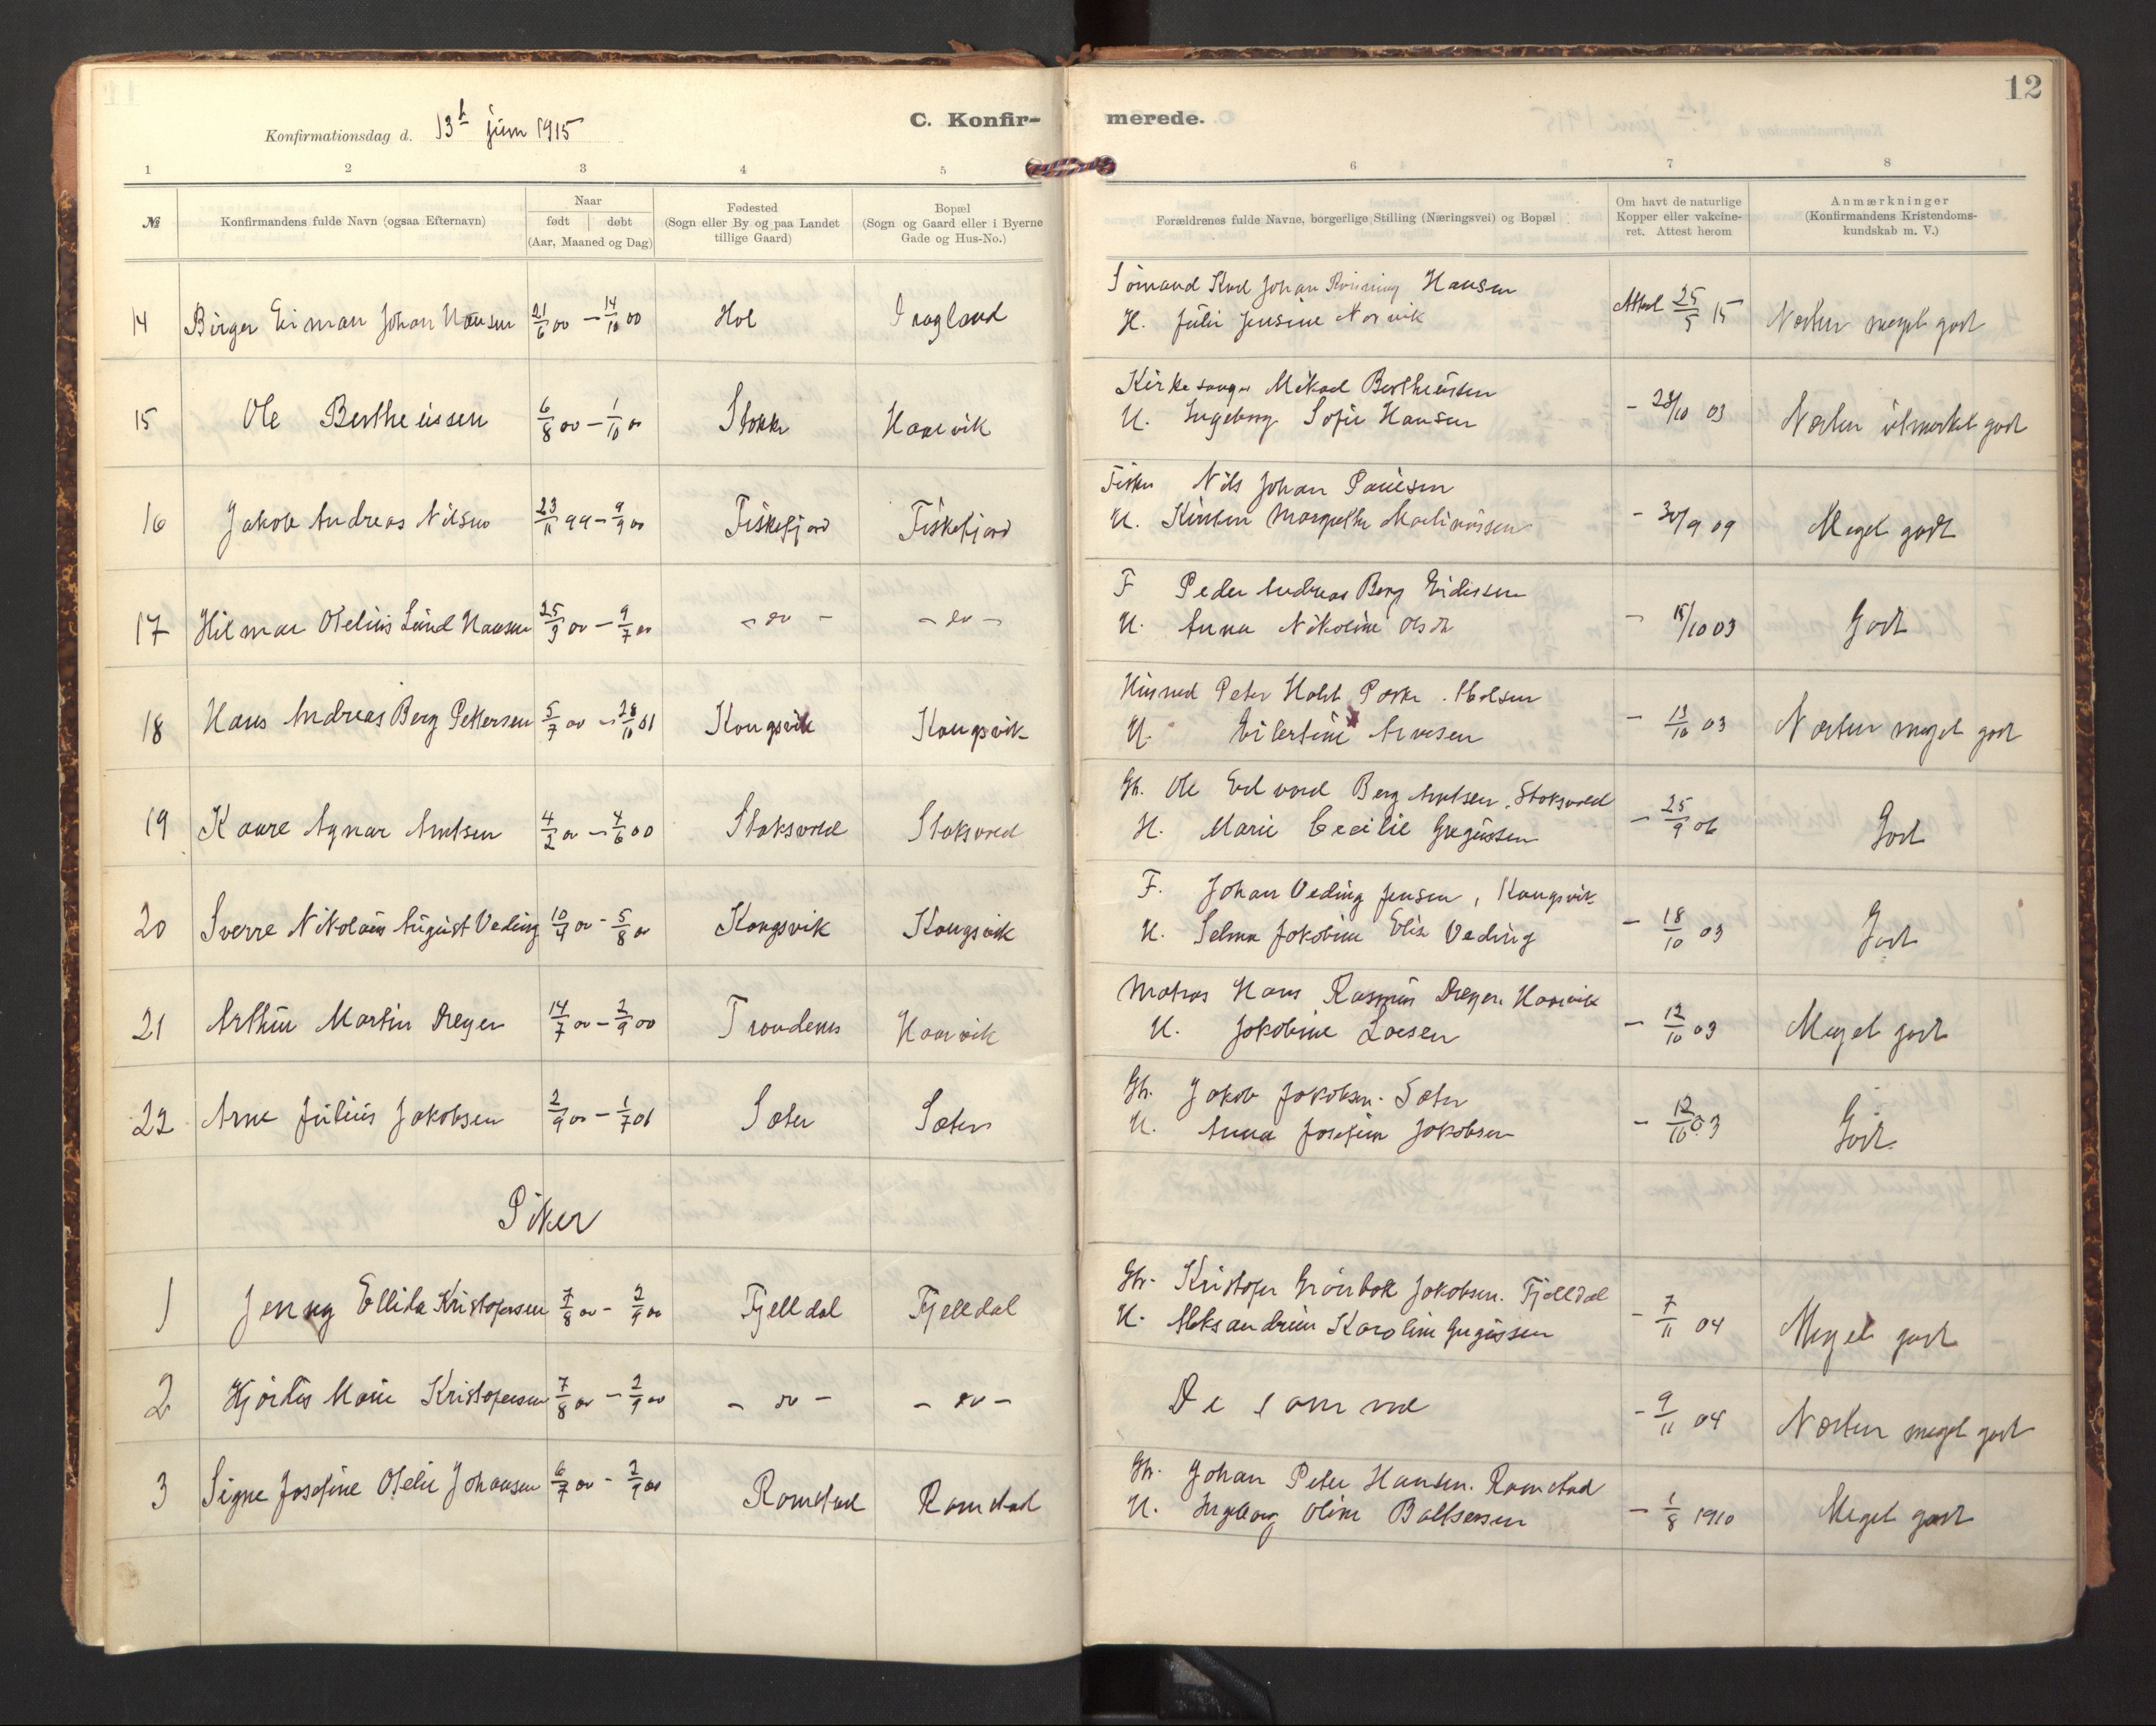 12
Konfirmationsdag d. 13de juni 1915
C. Konfir-
merede.
1 2 3 4 5
6 7 8
№
Konfirmandens fulde Navn (ogsaa Efternavn)
Naar
født | døbt
(Aar, Maaned og Dag)
Fødested
(Sogn eller By og paa Landet
tillige Gaard)
Bopæl
(Sogn og Gaard eller i Byerne
Gade og Hus-No.)
Forældrenes fulde Navne, borgerlige Stilling (Næringsvei) og Bopæl
Om havt de naturlige
Kopper eller vakcine-
ret. Attest herom
Anmærkninger
(Konfirmandens Kristendoms-
kundskab m. V.)
14 Birger Johan Hansen 21/6 00 – 14/10 00 Hol
Johan Hansen
H. Julie Jensine Norvik
Attest 25/5 15 Næsten meget godt
15 Ole Bertheussen 6/8 00 – 1/10 00 Stokke
Kirkesanger Mikael Bertheussen
H. Ingeborg Sofie Hansen
– 28/10 03 Næsten utmerket godt
16 Jakob Andreas Nilsen 23/11 99 – 9/9 00 Fiskefjord Fiskefjord
Fisker Nils Johan Paulsen
H. Kirsten Margrethe
– 30/9 09 Meget godt
17 Hilmar Otelius Lund Hansen 25/3 00 – 9/7 00 – do – – do –
F Peder Andreas Berg Eidissen
H. Anna Nikoline Olsdt
– 15/10 03 Godt
18 Hans Andreas Berg Pettersen 5/7 00 – 28/10 01 Kongsvik Kongsvik
Peter Holst
H. Eilertine Arnesen
– 13/10 03 Næsten meget godt
19 Kaare Agnar Arntsen 4/2 00 – 4/6 00 Staksvold Staksvold
Gbr. Ole Edvard Berg Arntsen, Staksvold
H. Marie Cecilie Gregussen
– 25/9 06 Godt
20 Sverre Nikolaus August Veding 10/4 00 – 5/8 00 Kongsvik Kongsvik
F. Johan Veding Jensen, Kongsvik
H. Selma Jakobine Elise Veding
– 18/10 03 Godt
21 Arthur Martin Dreyer 14/7 00 – 2/9 00 Trondenes
Matros Hans Rasmus Dreyer.
H. Jakobine Larsen
– 12/10 03 Meget godt
22 Arne Julius Jakobsen 2/9 00 – 1/7 01 Sæter Sæter
Gbr. Jakob Jakobsen. Sæter
H. Anna Josefine Jakobsen
– 12/10 03 Godt
Piker
1 Jenny Ellida Kristofersen 7/8 00 – 2/9 00 Fjelldal Fjelldal
Gbr. Kristofer Grönbek Jakobsen. Fjelldal
H. Aleksandrine Karoline Gregussen
– 7/11 04 Meget godt
2 Hjördis Marie Kristofersen 7/8 00 – 2/9 00 – do – – do –
De samme
– 9/11 04 Næsten meget godt
3 Signe Josefine Otelie Johansen 6/7 00 – 2/9 00 Ramstad Ramstad
Gbr. Johan Peter Hansen. Ramstad
H. Ingeborg Oline Baltsersen
– 1/8 1910 Meget godt